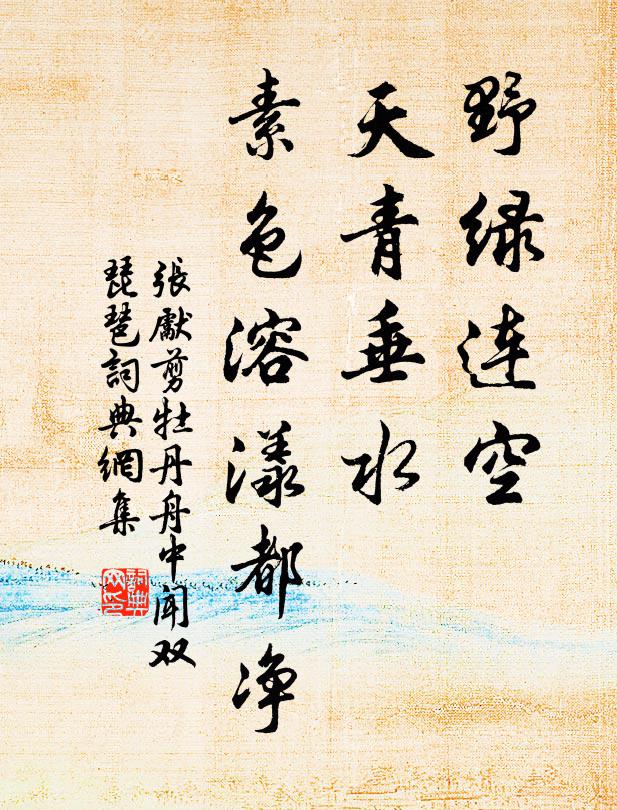 野绿连空
天青垂水
素色溶漾都净
張獻剪牡丹舟中闻双
琵琶詞典網集
詞典